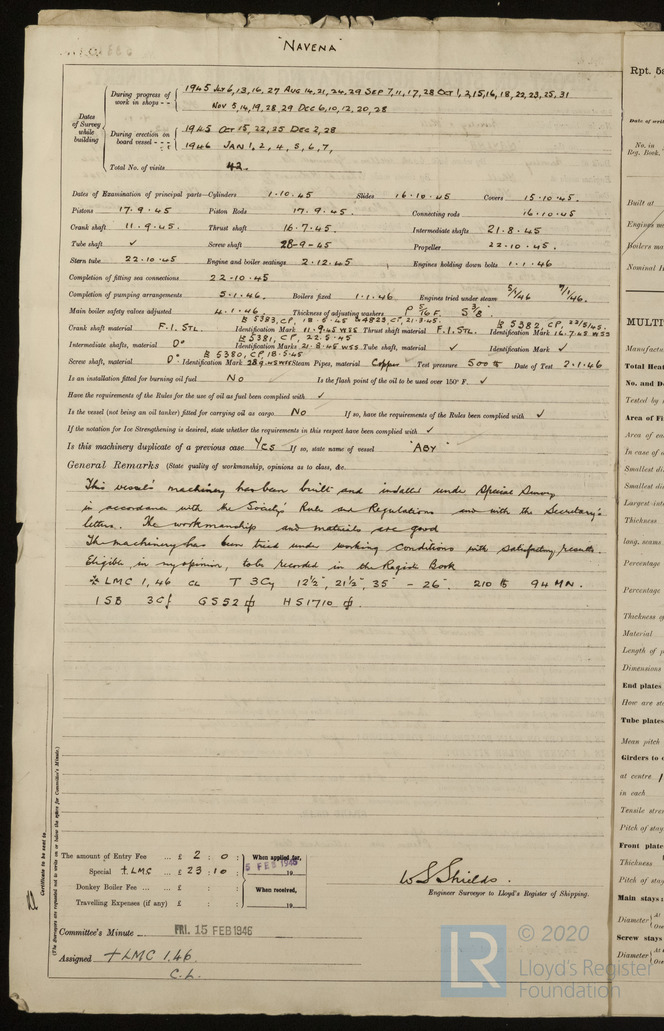 "NAVENA"
Dates of Survey while building
During progress of work in shops - - 1945 Jul 6,13,16,27 Aug 14,21,24,29 Sep 7,11,17,28 Oct 1,2,15,16,18,22,23,25,31
Nov 5,14,19,28,29 Dec 6,10,12,20,28
During erection on board vessel - - - 1945 Oct 15,22,25 Dec 2,28
1946 Jan 1,2,4,5,6,7,
Total No. of visits 42.
Dates of Examination of principal parts—Cylinders 1.10.45 Slides 16.10.45 Covers 15.10.45.
Pistons 17.9.45 Piston Rods 17.9.45. Connecting rods 16.10.45
Crank shaft 11.9.45. Thrust shaft 16.7.45 Intermediate shafts 21.8.45
Tube shaft ✓ Screw shaft 28-9-45 Propeller 22.10.45.
Stern tube 22.10.45 Engine and boiler seatings 2.12.45 Engines holding down bolts 1.1.46
Completion of fitting sea connections 22.10.45
Completion of pumping arrangements 5.1.46. Boilers fixed 1.1.46 Engines tried under steam 5/1/46 7/1/46.
Main boiler safety valves adjusted 4.1.46 Thickness of adjusting washers P 5/16 F. S 3/8
Crank shaft material F.I. STL. Identification Mark 5383, CP, 18.5.45 & 4823, CP, 21.3.45. 11.9.45 WSS Thrust shaft material F.I. STL. Identification Mark 5382, CP, 22/5/45. 16.7.45 WSS
Intermediate shafts, material Do Identification Marks 5381, CP, 22.5.45 21.8.45 WSS Tube shaft, material ✓ Identification Mark ✓
Screw shaft, material Do Identification Mark 5380, CP, 18.5.45 28.9.45 WSS Steam Pipes, material Copper Test pressure 500 Date of Test 2.1.46
Is an installation fitted for burning oil fuel No Is the flash point of the oil to be used over 150° F. ✓
Have the requirements of the Rules for the use of oil as fuel been complied with ✓
Is the vessel (not being an oil tanker) fitted for carrying oil as cargo No If so, have the requirements of the Rules been complied with ✓
If the notation for Ice Strengthening is desired, state whether the requirements in this respect have been complied with ✓
Is this machinery duplicate of a previous case Yes If so, state name of vessel "ABY"
General Remarks (State quality of workmanship, opinions as to class, &c.
This vessel's machinery has been built and installed under Special Survey
in accordance with the Society's Rules and Regulations and with the Secretary's
letters. The workmanship and materials are good
The machinery has been tried under working conditions with satisfactory results.
Eligible in my opinion, to be recorded in the Register Book
LMC 1,46 CL T 3Cy 12½", 21½", 35" - 26" 210 lb 94 MN.
1SB 3Cf GS52 HS1710
The amount of Entry Fee ... £ 2 : 0 : When applied for,
Special +LMC ... £ 23 : 10 : 5 FEB 1946 19
Donkey Boiler Fee ... ... £ : : When received,
Travelling Expenses (if any) £ : : 19
W S Shields.
Engineer Surveyor to Lloyd's Register of Shipping.
Committee's Minute FRI. 15 FEB 1946
Assigned + LMC 1.46.
C.L.
Certificate to be sent to
(The Surveyors are requested not to write on or below the space for Committee's Minute.)
© 2020
LR
Lloyd's Register
Foundation
Rpt. 5a
Date of writ
No. in
Reg. Book.
Built at
Engines ma
Boilers ma
Nominal H
MULTI
Manufactu
Total Heat
No. and D
Tested by
Area of Fi
Area of ea
In case of
Smallest di
Smallest di
Largest int
Thickness
long. seams
Percentage
Percentage
Thickness of
Material
Length of
Dimensions
End plates
How are st
Tube plates
Mean pitch
Girders to c
at centre
in each
Tensile stre
Pitch of stay
Front plate
Thickness
Pitch of stay
Main stays
Diameter
Screw stays
Diameter